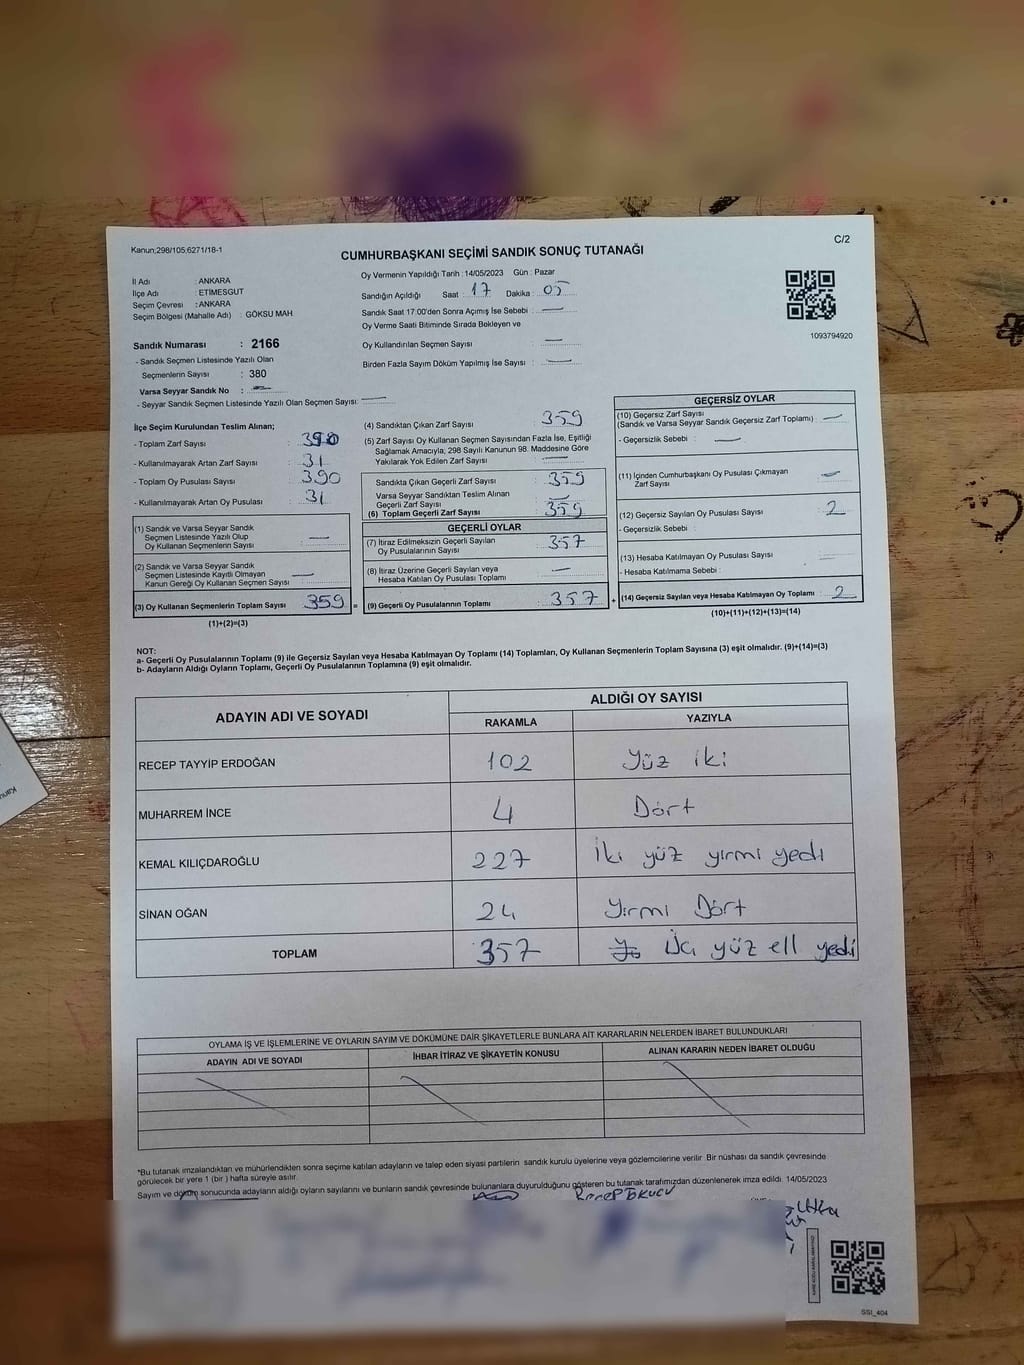 Kanun;298/105;6271/18-1
C/2
CUMHURBAŞKANI SEÇİMİ SANDIK SONUÇ TUTANAĞI
İl Adı : ANKARA
İlçe Adı : ETİMESGUT
Seçim Çevresi : ANKARA
Seçim Bölgesi (Mahalle Adı) : GÖKSU MAH
Sandık Numarası : 2166
- Sandık Seçmen Listesinde Yazılı Olan
Seçmenlerin Sayısı : 380
Varsa Seyyar Sandık No : —
- Seyyar Sandık Seçmen Listesinde Yazılı Olan Seçmen Sayısı: —
Oy Vermenin Yapıldığı Tarih :14/05/2023 Gün : Pazar
Sandığın Açıldığı Saat : 17 Dakika : 05
Sandık Saat 17:00'den Sonra Açımış İse Sebebi : —
Oy Verme Saati Bitiminde Sırada Bekleyen ve
Oy Kullandırılan Seçmen Sayısı : —
Birden Fazla Sayım Döküm Yapılmış İse Sayısı : —
1093794920
İlçe Seçim Kurulundan Teslim Alınan;
- Toplam Zarf Sayısı : 390
- Kullanılmayarak Artan Zarf Sayısı : 31
- Toplam Oy Pusulası Sayısı : 390
- Kullanılmayarak Artan Oy Pusulası : 31
(1) Sandık ve Varsa Seyyar Sandık
Seçmen Listesinde Yazılı Olup
Oy Kullanan Seçmenlerin Sayısı : —
(2) Sandık ve Varsa Seyyar Sandık
Seçmen Listesinde Kayıtlı Olmayan
Kanun Gereği Oy Kullanan Seçmen Sayısı : —
(3) Oy Kullanan Seçmenlerin Toplam Sayısı : 359 =
(1)+(2)=(3)
(4) Sandıktan Çıkan Zarf Sayısı : 359
(5) Zarf Sayısı Oy Kullanan Seçmen Sayısından Fazla İse, Eşitliği
Sağlamak Amacıyla; 298 Sayılı Kanunun 98. Maddesine Göre
Yakılarak Yok Edilen Zarf Sayısı : —
Sandıkta Çıkan Geçerli Zarf Sayısı : 359
Varsa Seyyar Sandıktan Teslim Alınan
Geçerli Zarf Sayısı : —
(6) Toplam Geçerli Zarf Sayısı : 359
GEÇERLİ OYLAR
(7) İtiraz Edilmeksizin Geçerli Sayılan
Oy Pusulalarının Sayısı : 357
(8) İtiraz Üzerine Geçerli Sayılan veya
Hesaba Katılan Oy Pusulası Toplamı : —
(9) Geçerli Oy Pusulalarının Toplamı : 357 +
GEÇERSİZ OYLAR
(10) Geçersiz Zarf Sayısı
(Sandık ve Varsa Seyyar Sandık Geçersiz Zarf Toplamı) : —
- Geçersizlik Sebebi : —
(11) İçinden Cumhurbaşkanı Oy Pusulası Çıkmayan
Zarf Sayısı : —
(12) Geçersiz Sayılan Oy Pusulası Sayısı : 2
- Geçersizlik Sebebi :
(13) Hesaba Katılmayan Oy Pusulası Sayısı : —
- Hesaba Katılmama Sebebi :
(14) Geçersiz Sayılan veya Hesaba Katılmayan Oy Toplamı : 2
(10)+(11)+(12)+(13)=(14)
NOT:
a- Geçerli Oy Pusulalarının Toplamı (9) ile Geçersiz Sayılan veya Hesaba Katılmayan Oy Toplamı (14) Toplamları, Oy Kullanan Seçmenlerin Toplam Sayısına (3) eşit olmalıdır. (9)+(14)=(3)
b- Adayların Aldığı Oyların Toplamı, Geçerli Oy Pusulalarının Toplamına (9) eşit olmalıdır.
ADAYIN ADI VE SOYADI
ALDIĞI OY SAYISI
RAKAMLA YAZIYLA
RECEP TAYYİP ERDOĞAN 102 Yüz iki
MUHARREM İNCE 4 Dört
KEMAL KILIÇDAROĞLU 227 İki yüz yirmi yedi
SİNAN OĞAN 24 Yirmi Dört
TOPLAM 357 Üç yüz ell yedi
OYLAMA İŞ VE İŞLEMLERİNE VE OYLARIN SAYIM VE DÖKÜMÜNE DAİR ŞİKAYETLERLE BUNLARA AİT KARARLARIN NELERDEN İBARET BULUNDUKLARI
ADAYIN ADI VE SOYADI İHBAR İTİRAZ VE ŞİKAYETİN KONUSU ALINAN KARARIN NEDEN İBARET OLDUĞU
*Bu tutanak imzalandıktan ve mühürlendikten sonra seçime katılan adayların ve talep eden siyasi partilerin sandık kurulu üyelerine veya gözlemcilerine verilir. Bir nüshası da sandık çevresinde
görülecek bir yere 1 (bir ) hafta süreyle asılır.
Sayım ve döküm sonucunda adayların aldığı oyların sayılarını ve bunların sandık çevresinde bulunanlara duyurulduğunu gösteren bu tutanak tarafımızdan düzenlenerek imza edildi. 14/05/2023
SSI_404